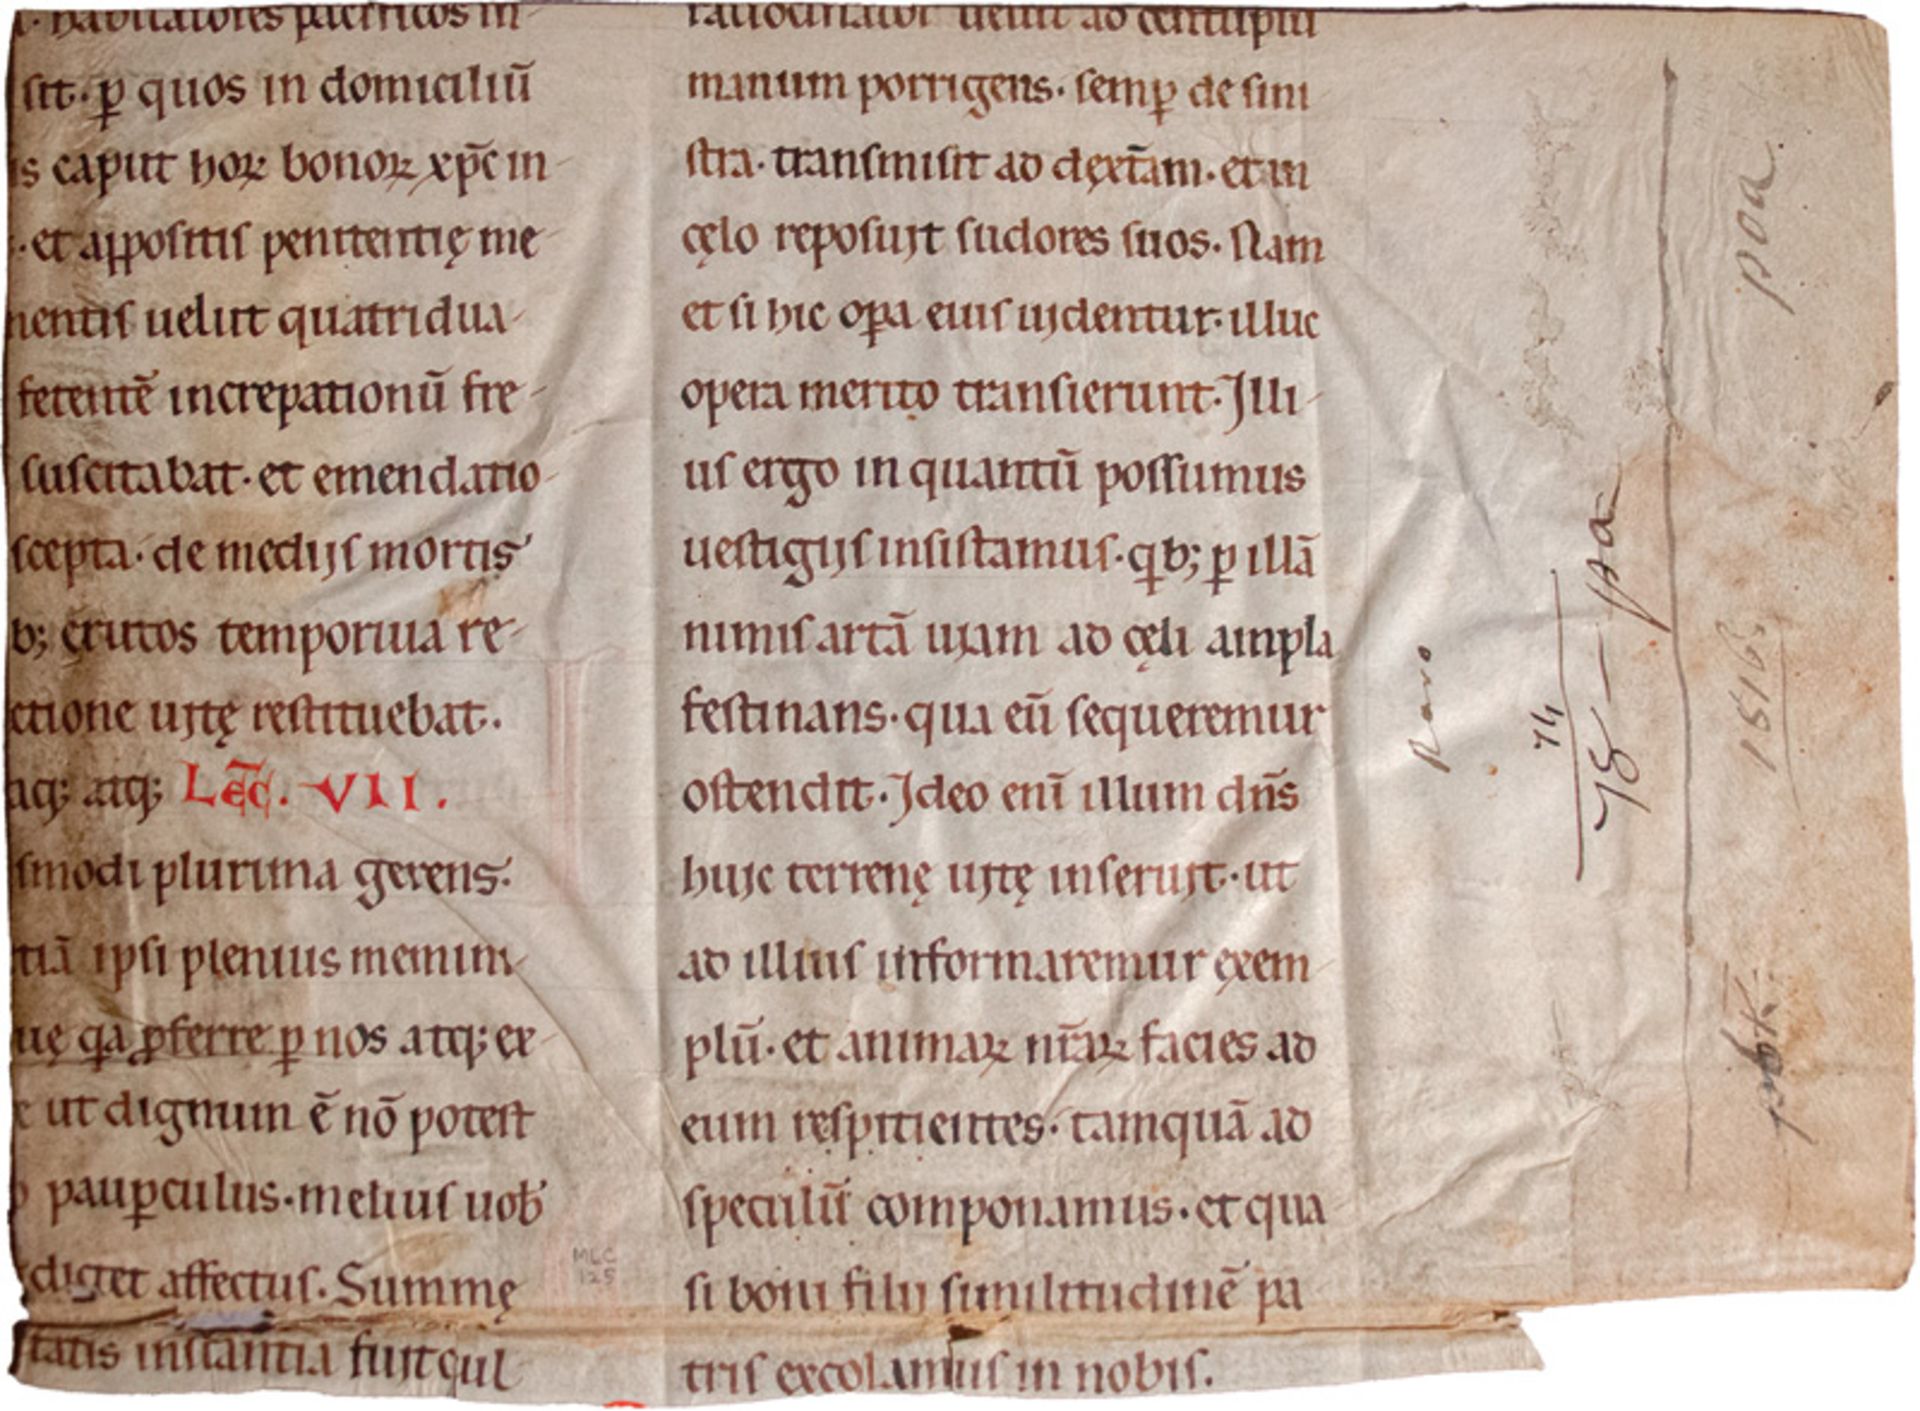 habitatores pacificos in-
sit· p̲ quos in domiciliū
is caput hoꝝ bonoꝝ xp̄c in-
· et appositis penitentię me-
nentis uelut quatridua-
fetentē increpationū fre-
suscitabat· et emendatio-
scepta· de medijs mortis
b; erutos temporiua re-
ctione uitę restituebat.
aq; atq; Lec̄c̄. VII.
smodi plurima gerens.
tiā ipsi plenius memini-
uę q̲a p̲ferre p̲ nos atq; ex-
ut dignum ē nō potest
paup̲culus· melius uob̄
diget affectus. Summę
statis instantia fuit cul-
ratiocinator uelut ad centuplū
manum porrigens· semp̲ de sini
stra· transmisit ad dęxt̄am· et in
cęlo reposuit sudores suos· Nam
et si hic op̲a eius uidentur· illuc
opera merito transierunt. Illi-
us ergo in quantū possumus
uestigijs insistamus· q̲b; p̲ illā
nimis artā uiam ad cęli ampla
festinans· qua eū sequeremur
ostendit. Ideo enī illum dn̄s
huic terrenę uitę inseruit· ut
ad illius informaremur exem-
plū· et animaꝝ nr̄aꝝ facies ad
eum respitientes· tamquā ad
speculū componamus· et qua
si boni filij similitudinē pa
tris excolamus in nobis.
MLC
125
74
78
15165
poa